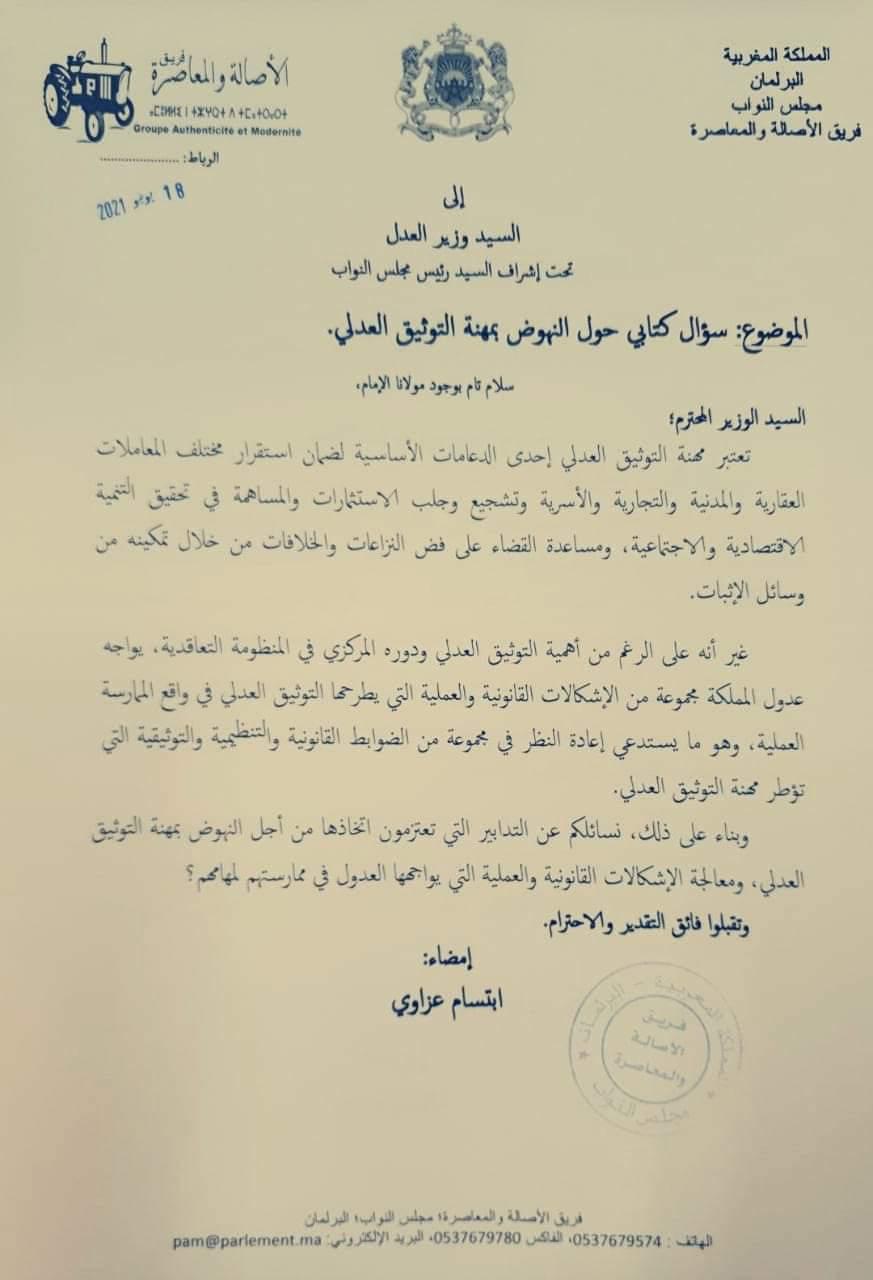 المملكة المغربية
البرلمان
مجلس النواب
فريق الأصالة والمعاصرة
فريق
الأصالة والمعاصرة
Groupe Authenticité et Modernité
الرباط: ......................
18 يونيو 2021
إلى
السيد وزير العدل
تحت إشراف السيد رئيس مجلس النواب
الموضوع: سؤال كتابي حول النهوض بمهنة التوثيق العدلي.
سلام تام بوجود مولانا الإمام،
السيد الوزير المحترم؛
تعتبر مهنة التوثيق العدلي إحدى الدعامات الأساسية لضمان استقرار مختلف المعاملات
العقارية والمدنية والتجارية والأسرية وتشجيع وجلب الاستثمارات والمساهمة في تحقيق التنمية
الاقتصادية والاجتماعية، ومساعدة القضاء على فض النزاعات والخلافات من خلال تمكينه من
وسائل الإثبات.
غير أنه على الرغم من أهمية التوثيق العدلي ودوره المركزي في المنظومة التعاقدية، يواجه
عدول المملكة مجموعة من الإشكالات القانونية والعملية التي يطرحها التوثيق العدلي في واقع الممارسة
العملية، وهو ما يستدعي إعادة النظر في مجموعة من الضوابط القانونية والتنظيمية والتوثيقية التي
تؤطر مهنة التوثيق العدلي.
وبناء على ذلك، نسائلكم عن التدابير التي تعتزمون اتخاذها من أجل النهوض بمهنة التوثيق
العدلي، ومعالجة الإشكالات القانونية والعملية التي يواجهها العدول في ممارستهم لمهامهم؟
وتقبلوا فائق التقدير والاحترام.
إمضاء:
ابتسام عزاوي
المملكة المغربية - البرلمان
فريق
الأصالة
والمعاصرة
مجلس النواب
فريق الأصالة والمعاصرة؛ مجلس النواب؛ البرلمان
الهاتف : 0537679574، الفاكس 0537679780، البريد الإلكتروني: pam@parlement.ma